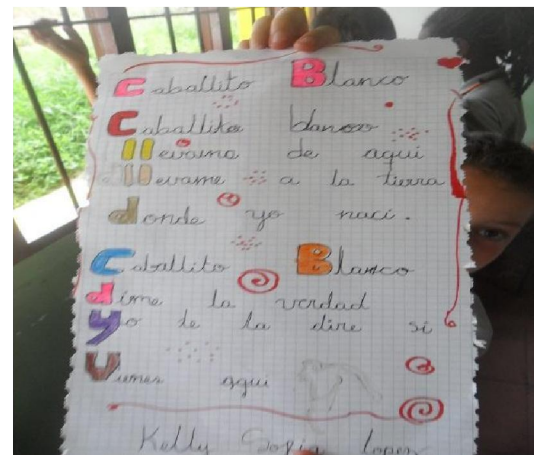 Caballito Blanco
Caballito blanco
llevama de aqui
llevame a la tierra
donde yo naci.
Caballito Blanco
dime la verdad
Yo te la dire si
Vienes aqui
Kelly Sofia Lopez